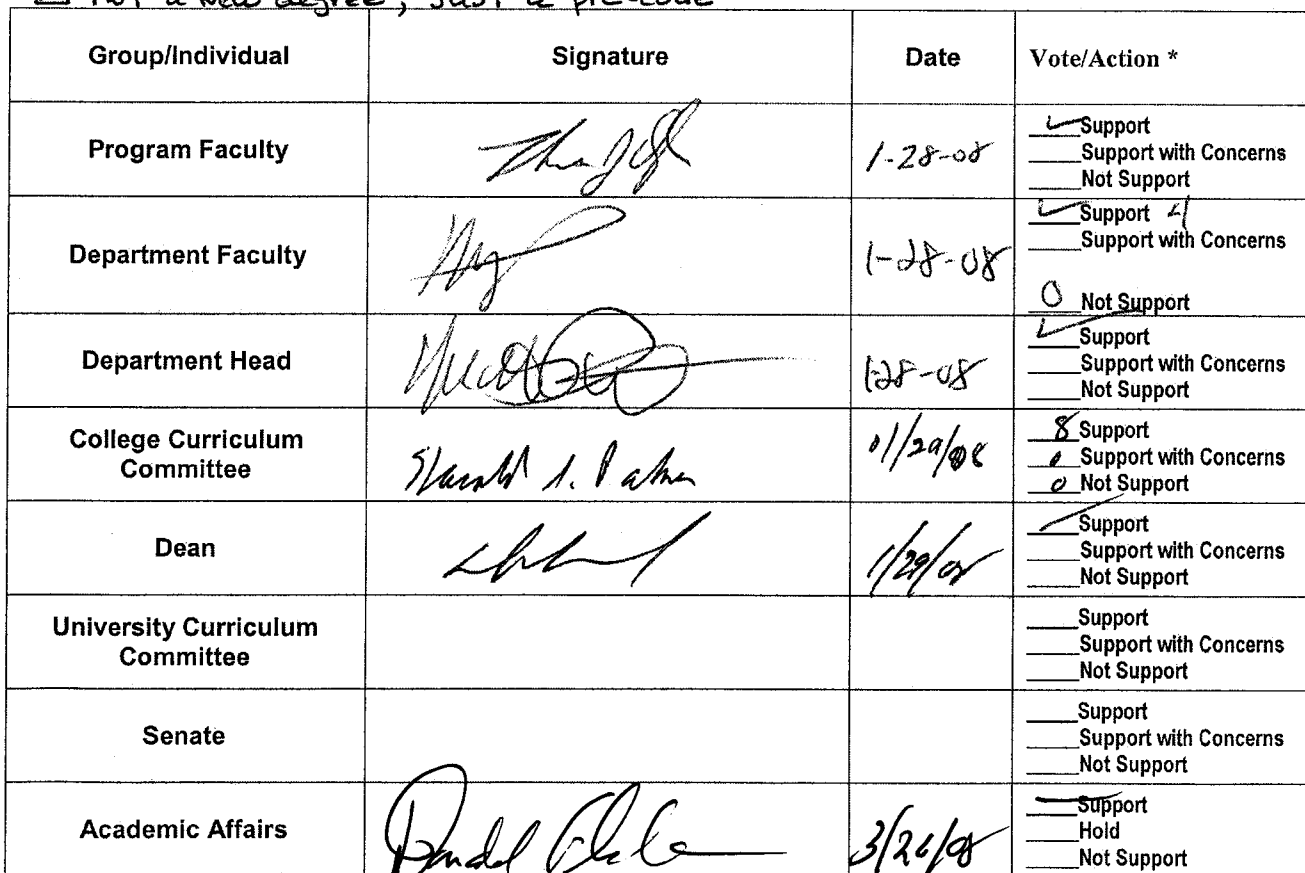 not a new degree, just a pre-code
Group/Individual Signature Date Vote/Action *
Program Faculty 1-28-08
Support
Support with Concerns
Not Support
Department Faculty 1-28-08
Support 4
Support with Concerns
0 Not Support
Department Head 1-28-08
Support
Support with Concerns
Not Support
College Curriculum
Committee
01/29/08
8 Support
0 Support with Concerns
0 Not Support
Dean 1/29/08
Support
Support with Concerns
Not Support
University Curriculum
Committee
Support
Support with Concerns
Not Support
Senate
Support
Support with Concerns
Not Support
Academic Affairs 3/26/08
Support
Hold
Not Support